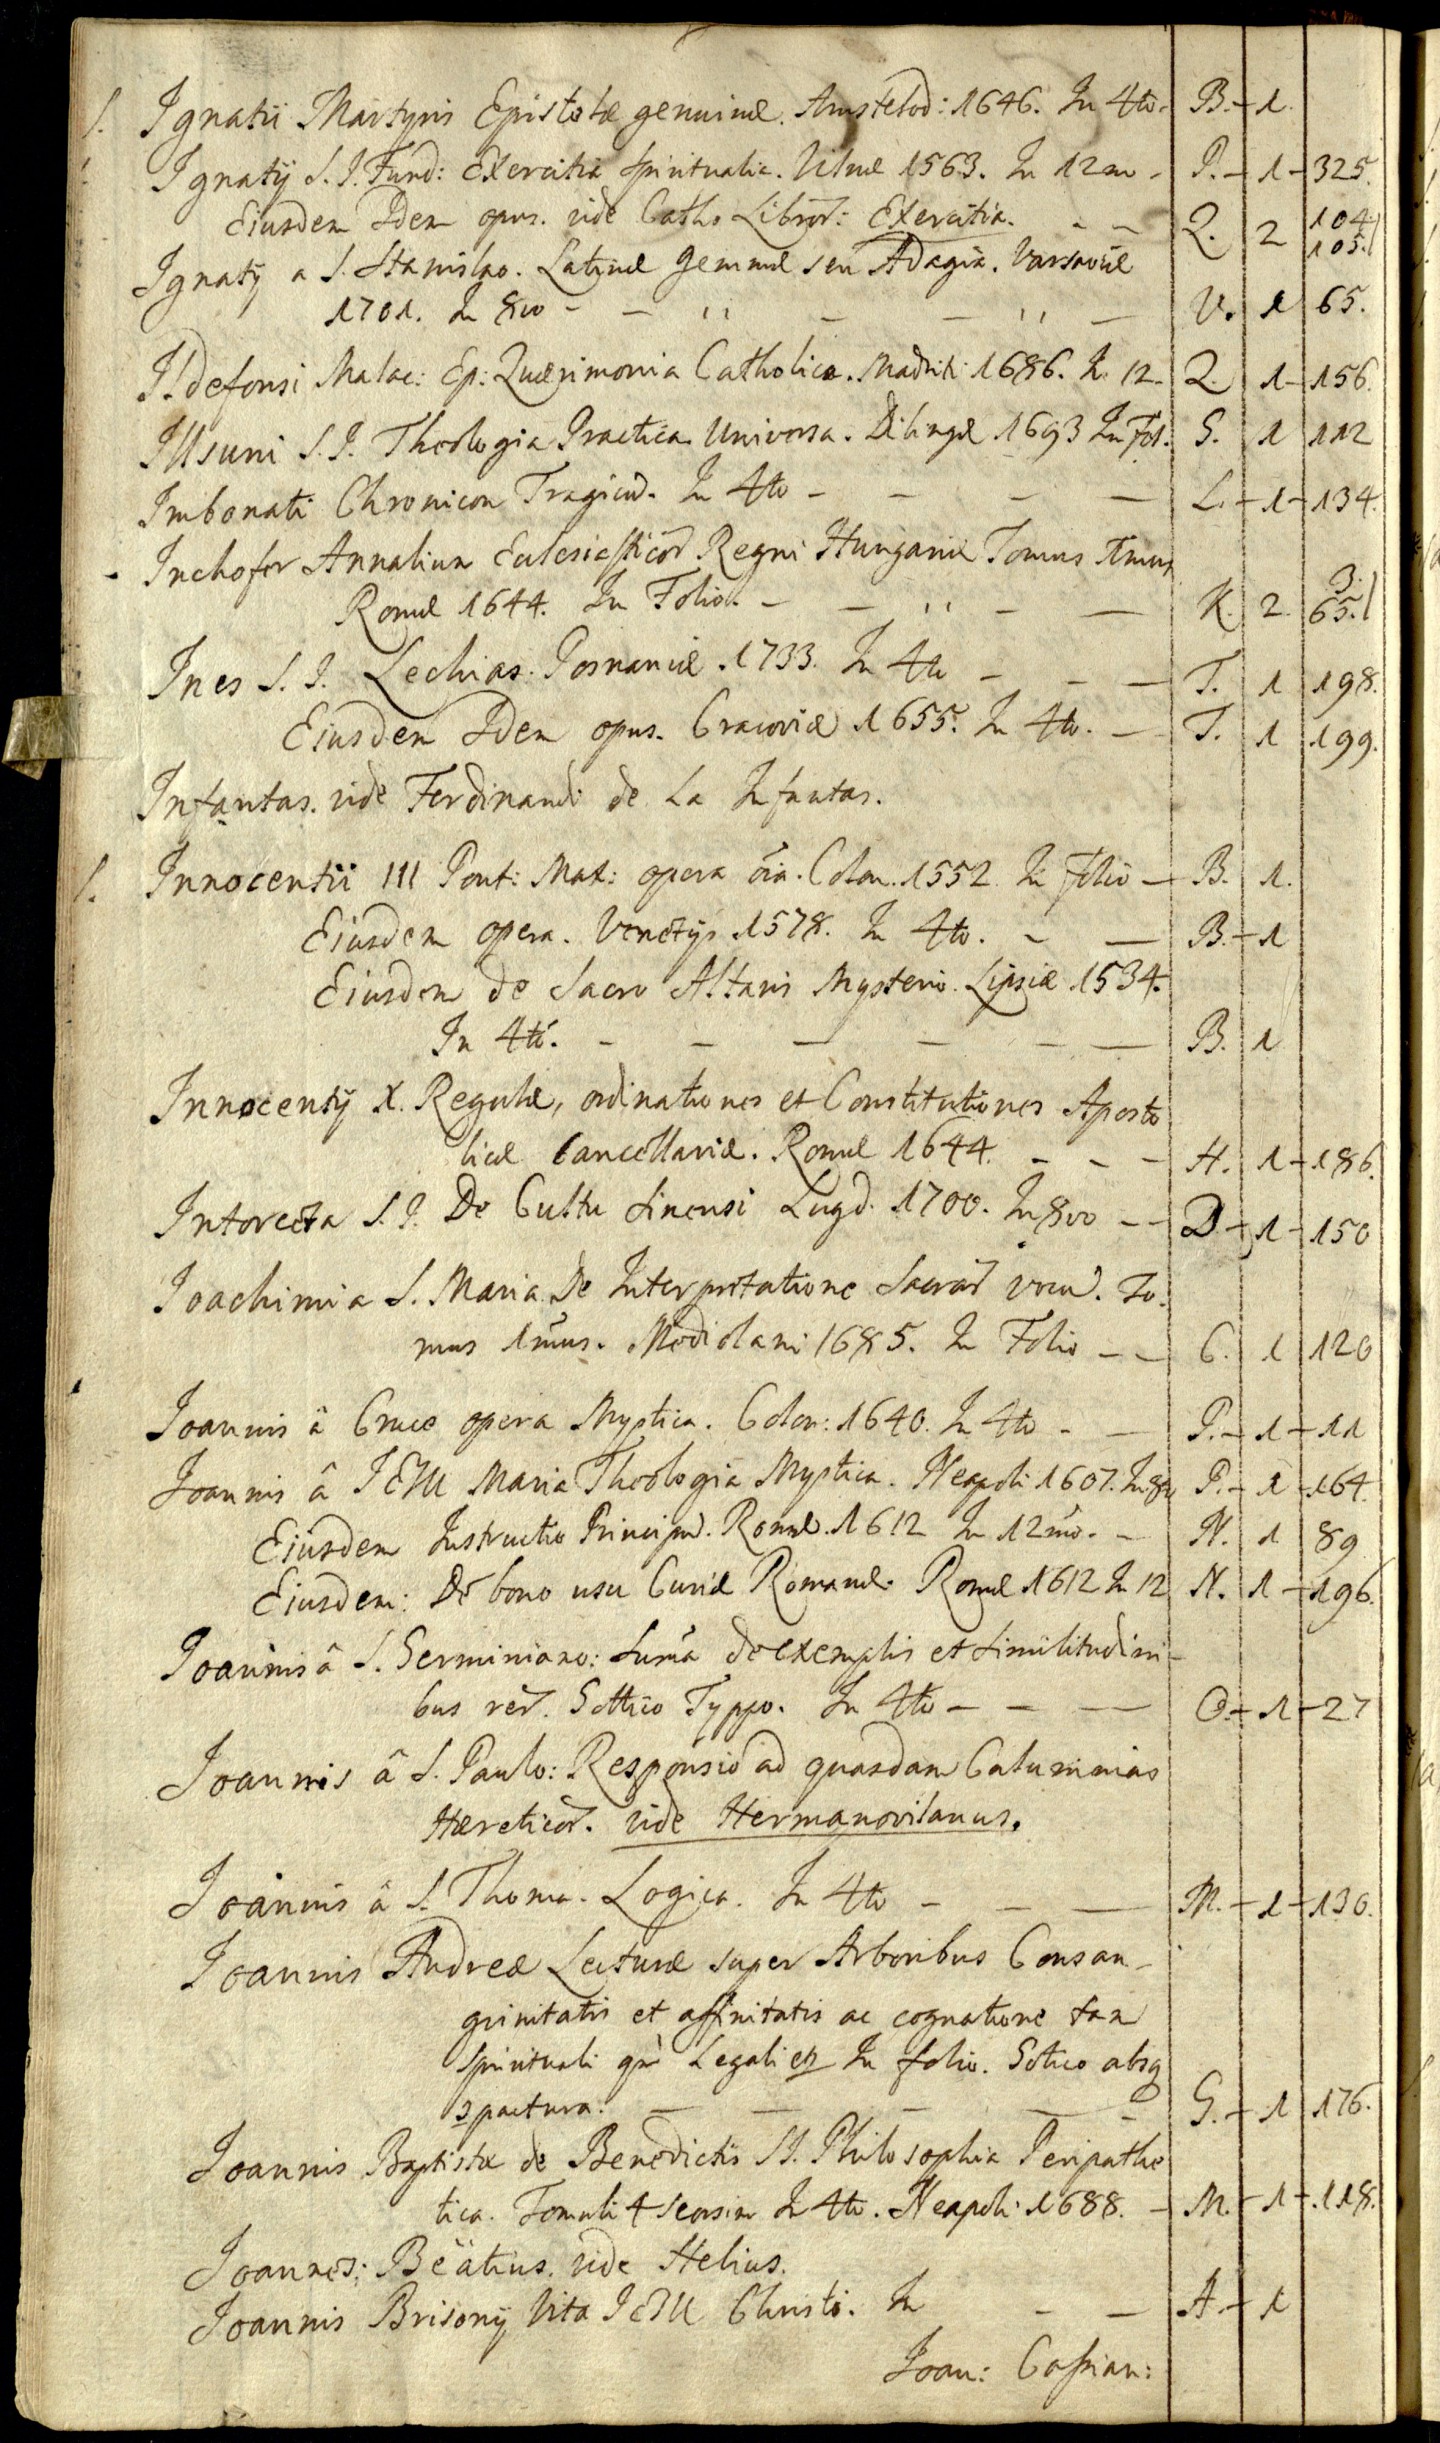 S. Ignatii Martyris Epistolæ genuinæ. Amstelod: 1646. In 4to. B. 1.
Ignatij S. J. Fund: Exercitia spiritualia. Vilnæ 1563. In 12mo - P. - 1 - 325.
Eiusdem Idem opus. vide Catho Libror: Exercitia. - - Q. 2 104. 105.
Ignatij a S. Stanislao. Latinæ Gemmæ seu Adagia. Varsaviæ
1701. In 8vo - - " - - " - V. 1 65.
Ildefonsi Malac: Ep: Quærimonia Catholica. Madriti 1686. In 12. Q. 1 - 156.
Illsuni S. J. Theologia Practica Universa. Dilingæ 1693 In Fol. S. 1 112
Imbonati Chronicon Tragicũ. In 4to - - - - L. - 1 - 134.
Inchofer Annalium Ecclesiasticor Regni Hungariæ Tomus Imus
Romæ 1644. In Folio. - - " - - K. 2. 3. 65.
Ines S. J. Lechias. Posnaniæ. 1733. In 4to - - - T. 1 198.
Eiusdem Idem opus. Cracoviæ 1655. In 4to. - T. 1 199.
Infantas. vide Ferdinandi de La Infantas.
S. Innocentii III Pont: Max: opera oĩa. Colon. 1552. In Folio - B. 1.
Eiusdem opera. Venetijs 1578. In 4to. - - B. - 1
Eiusdem de Sacro Altaris Mysterio. Lipsiæ 1534.
In 4to. - - - - - - B. 1
Innocentij X. Regulæ, ordinationes et Constitutiones Aposto
licæ Cancellariæ. Romæ 1644. - - - H. 1 - 186.
Intorcetta S. J. De Cultu Sinensi Lugd. 1700. In 8vo - - D - 1 - 150
Joachimi a S. Maria De Interpretatione Sacrar̃ vocũ. To-
mus 1mus. Mediolani 1685. In Folio - - C. 1 120
Joannis â Cruce opera Mystica. Colon: 1640. In 4to - - P. - 1 - 11
Joannis â JESU Maria Theologia Mystica. Neapoli 1607. In 8vo P. - 1 - 164.
Eiusdem Instructio Principũ. Romæ. 1612 In 12mo. - N. 1 89
Eiusdem: De bono usu Curiæ Romanæ. Romæ 1612 In 12 N. 1 - 196.
Joannis â S. Germiniano: Sum̃a de exemplis et similitudini-
bus rer̃. Gottico Typpo. In 4to - - - O. - 1 - 27
Joannis â S. Paulo: Responsio ad quasdam Calumnias
Hæreticor̃. vide Hermanovilanus.
Joannis â S. Thoma. Logica. In 4to - - - M. - 1 - 130.
Joannis Andreæ Lecturæ super Arboribus Consan-
guinitatis et affinitatis ac cognatione tam
spirituali quã Legali etc In folio. Gotico absq
2pactura. - - - - - G. - 1 176.
Joannis Baptistæ de Benedictis SJ. Philosophia Peripathe
tica. Tomuli 4 seorsim In 4to. Neapoli 1688. - M. - 1 - 118.
Joannes: Beätius. vide Helius.
Joannis Brisonij Vita JESU Christi. In - - A. - 1
Joan: Cassian: